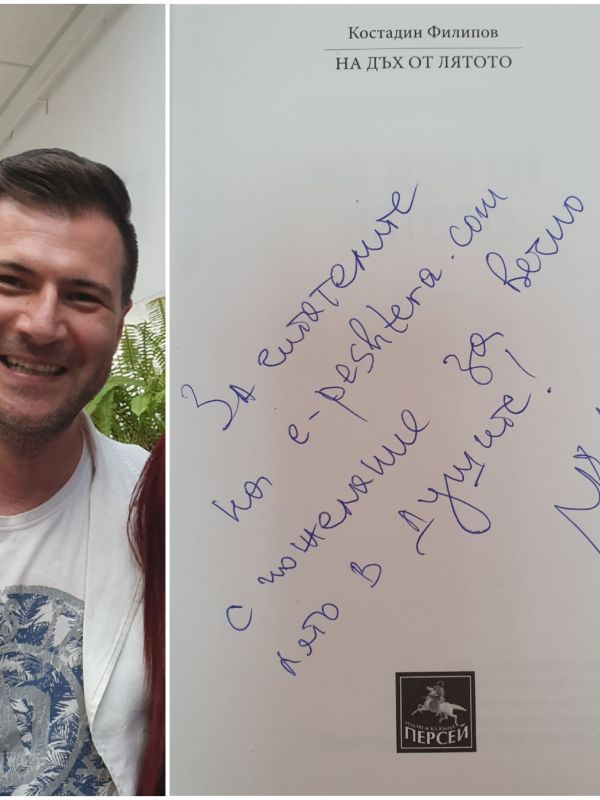 Костадин Филипов
НА ДЪХ ОТ ЛЯТОТО
За читателите
на e-peshtera.com
с пожелание за вечно
лято в душите!
ПЕРСЕЙ